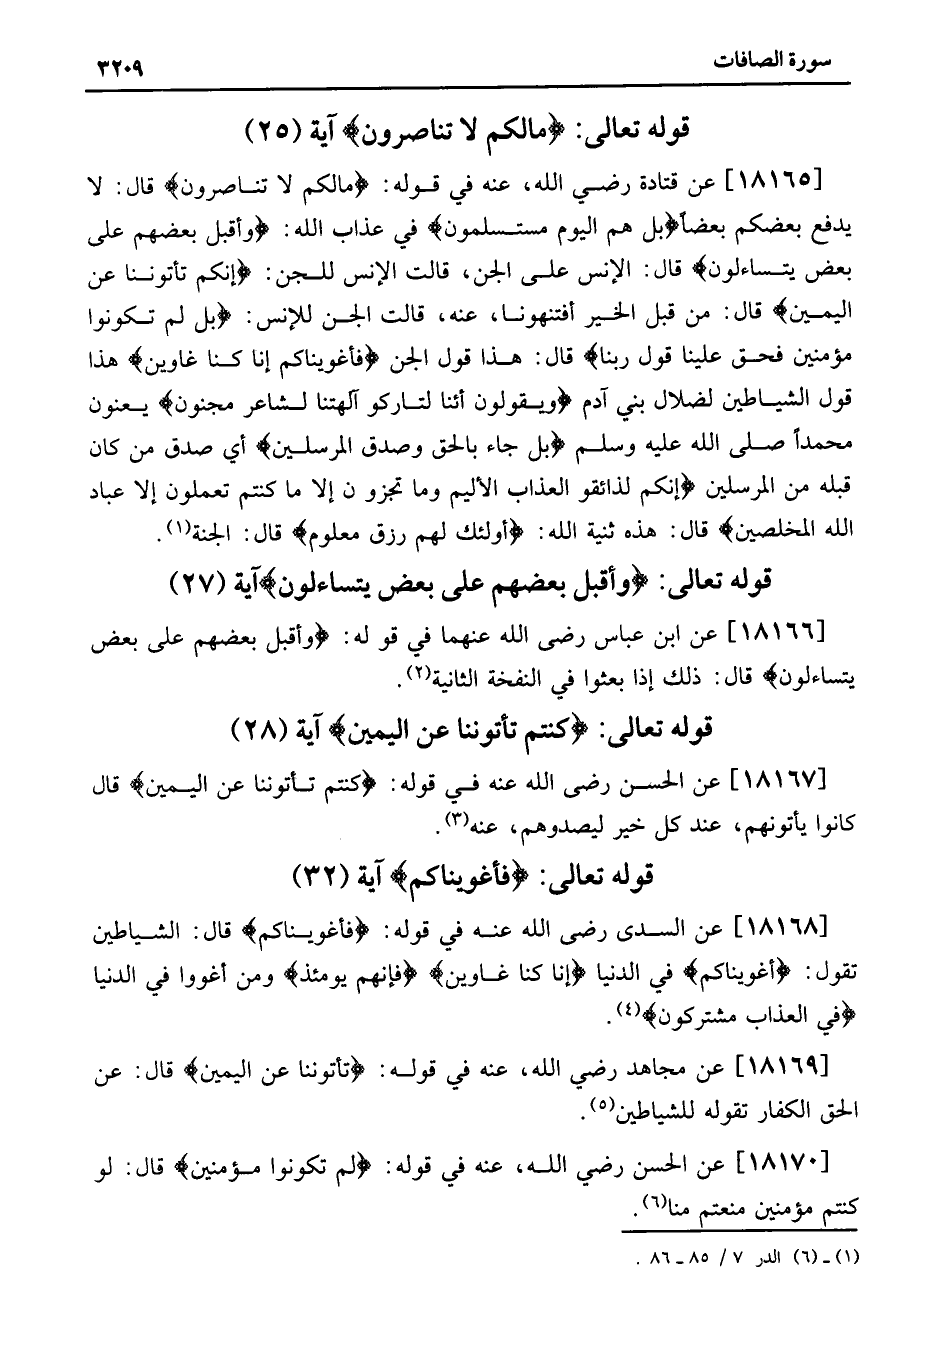 سورة الصافات ٣٢٠٩
قوله تعالى: ﴿مالكم لا تناصرون﴾ آية (٢٥)
[١٨١٦٥] عن قتادة رضي الله، عنه في قوله: ﴿مالكم لا تناصرون﴾ قال: لا
يدفع بعضكم بعضاً﴿بل هم اليوم مستسلمون﴾ في عذاب الله: ﴿وأقبل بعضهم على
بعض يتساءلون﴾ قال: الإنس على الجن، قالت الإنس للجن: ﴿إنكم تأتوننا عن
اليمين﴾ قال: من قبل الخير أفتنهونا، عنه، قالت الجن للإنس: ﴿بل لم تكونوا
مؤمنين فحق علينا قول ربنا﴾ قال: هذا قول الجن ﴿فأغويناكم إنا كنا غاوين﴾ هذا
قول الشياطين لضلال بني آدم ﴿ويقولون أئنا لتاركو آلهتنا لشاعر مجنون﴾ يعنون
محمداً صلى الله عليه وسلم ﴿بل جاء بالحق وصدق المرسلين﴾ أي صدق من كان
قبله من المرسلين ﴿إنكم لذائقو العذاب الأليم وما تجزو ن إلا ما كنتم تعملون إلا عباد
الله المخلصين﴾ قال: هذه ثنية الله: ﴿أولئك لهم رزق معلوم﴾ قال: الجنة(١).
قوله تعالى: ﴿وأقبل بعضهم على بعض يتساءلون﴾آية (٢٧)
[١٨١٦٦] عن ابن عباس رضى الله عنهما في قو له: ﴿وأقبل بعضهم على بعض
يتساءلون﴾ قال: ذلك إذا بعثوا في النفخة الثانية(٢).
قوله تعالى: ﴿كنتم تأتوننا عن اليمين﴾ آية (٢٨)
[١٨١٦٧] عن الحسن رضى الله عنه في قوله: ﴿كنتم تأتوننا عن اليمين﴾ قال
كانوا يأتونهم، عند كل خير ليصدوهم، عنه(٣).
قوله تعالى: ﴿فأغويناكم﴾ آية (٣٢)
[١٨١٦٨] عن السدى رضى الله عنه في قوله: ﴿فأغويناكم﴾ قال: الشياطين
تقول: ﴿أغويناكم﴾ في الدنيا ﴿إنا كنا غاوين﴾ ﴿فإنهم يومئذ﴾ ومن أغووا في الدنيا
﴿في العذاب مشتركون﴾(٤).
[١٨١٦٩] عن مجاهد رضي الله، عنه في قوله: ﴿تأتوننا عن اليمين﴾ قال: عن
الحق الكفار تقوله للشياطين(٥).
[١٨١٧٠] عن الحسن رضي الله، عنه في قوله: ﴿لم تكونوا مؤمنين﴾ قال: لو
كنتم مؤمنين منعتم منا(٦).
(١) ـ (٦) الدر ٧ / ٨٥ ـ ٨٦ .